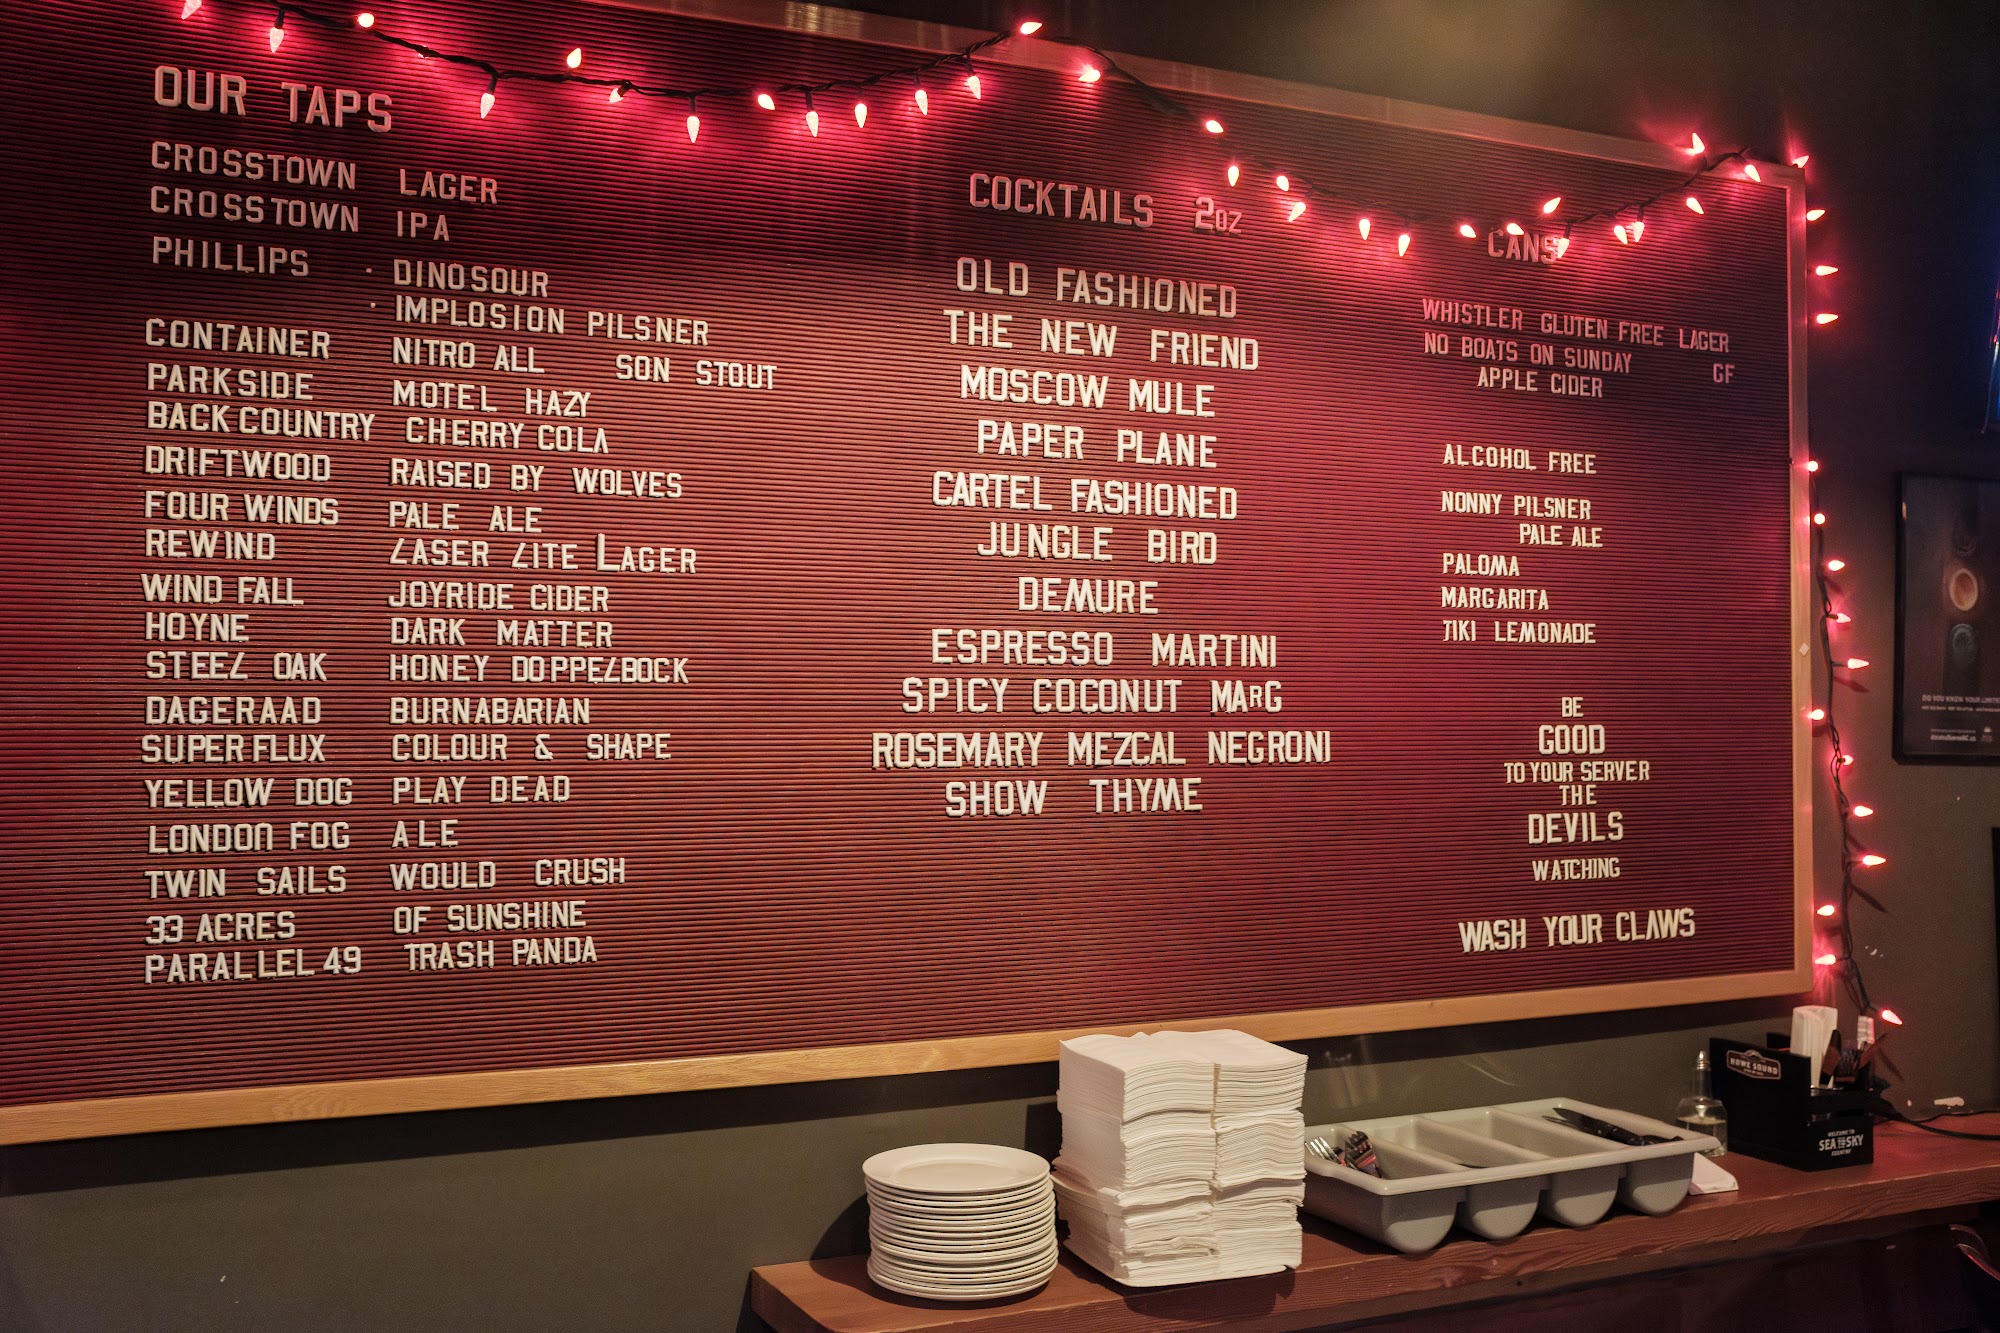 OUR TAPS
CROSSTOWN LAGER
CROSSTOWN IPA
PHILLIPS · DINOSOUR
· IMPLOSION PILSNER
CONTAINER NITRO ALL SON STOUT
PARKSIDE MOTEL HAZY
BACK COUNTRY CHERRY COLA
DRIFTWOOD RAISED BY WOLVES
FOUR WINDS PALE ALE
REWIND LASER LITE LAGER
WIND FALL JOYRIDE CIDER
HOYNE DARK MATTER
STEEL OAK HONEY DOPPELBOCK
DAGERAAD BURNABARIAN
SUPERFLUX COLOUR & SHAPE
YELLOW DOG PLAY DEAD
LONDON FOG ALE
TWIN SAILS WOULD CRUSH
33 ACRES OF SUNSHINE
PARALLEL 49 TRASH PANDA
COCKTAILS 2OZ
OLD FASHIONED
THE NEW FRIEND
MOSCOW MULE
PAPER PLANE
CARTEL FASHIONED
JUNGLE BIRD
DEMURE
ESPRESSO MARTINI
SPICY COCONUT MARG
ROSEMARY MEZCAL NEGRONI
SHOW THYME
CANS
WHISTLER GLUTEN FREE LAGER
NO BOATS ON SUNDAY GF
APPLE CIDER
ALCOHOL FREE
NONNY PILSNER
PALE ALE
PALOMA
MARGARITA
TIKI LEMONADE
BE
GOOD
TO YOUR SERVER
THE
DEVILS
WATCHING
WASH YOUR CLAWS
HOWE SOUND
WELCOME TO
SEA TO SKY
COUNTRY